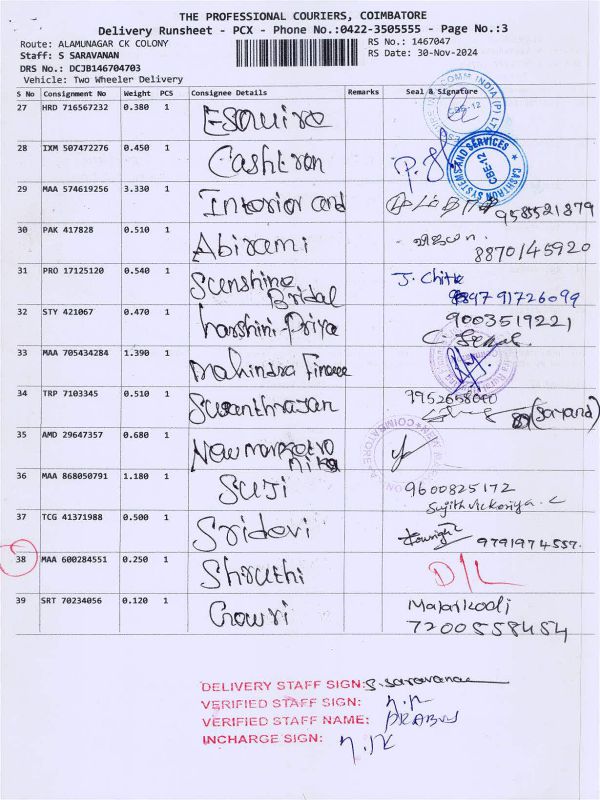 THE PROFESSIONAL COURIERS, COIMBATORE
Delivery Runsheet - PCX - Phone No.:0422-3505555 - Page No.:3
Route: ALAMUNAGAR CK COLONY RS No.: 1467047
Staff: S SARAVANAN RS Date: 30-Nov-2024
DRS No.: DCJB146704703
Vehicle: Two Wheeler Delivery
S No Consignment No Weight PCS Consignee Details Remarks Seal & Signature
27 HRD 716567232 0.380 1 Esquire
CBE-12
28 IXM 507472276 0.450 1 Cashtron
CASHTRON SYSTEMS AND SERVICES CBE-12
29 MAA 574619256 3.330 1 Interior and 9585521879
30 PAK 417828 0.510 1 Abirami
8870145920
31 PRO 17125120 0.540 1 Sunshine J. Chitr
Bridal 9791726099
32 STY 421067 0.470 1 harshini-Priya 9003519221
33 MAA 705434284 1.390 1 Mahindra Finance
34 TRP 7103345 0.510 1
35 AMD 29647357 0.680 1
36 MAA 868050791 1.180 1 SUJI 9600825172
37 TCG 41371988 0.500 1 Sridevi 9791974557.
38 MAA 600284551 0.250 1 Shruthi D/L
39 SRT 70234056 0.120 1 Gowri Malarkodi
7200558454
DELIVERY STAFF SIGN: S. Saravanan
VERIFIED STAFF SIGN:
VERIFIED STAFF NAME: PRABU
INCHARGE SIGN: